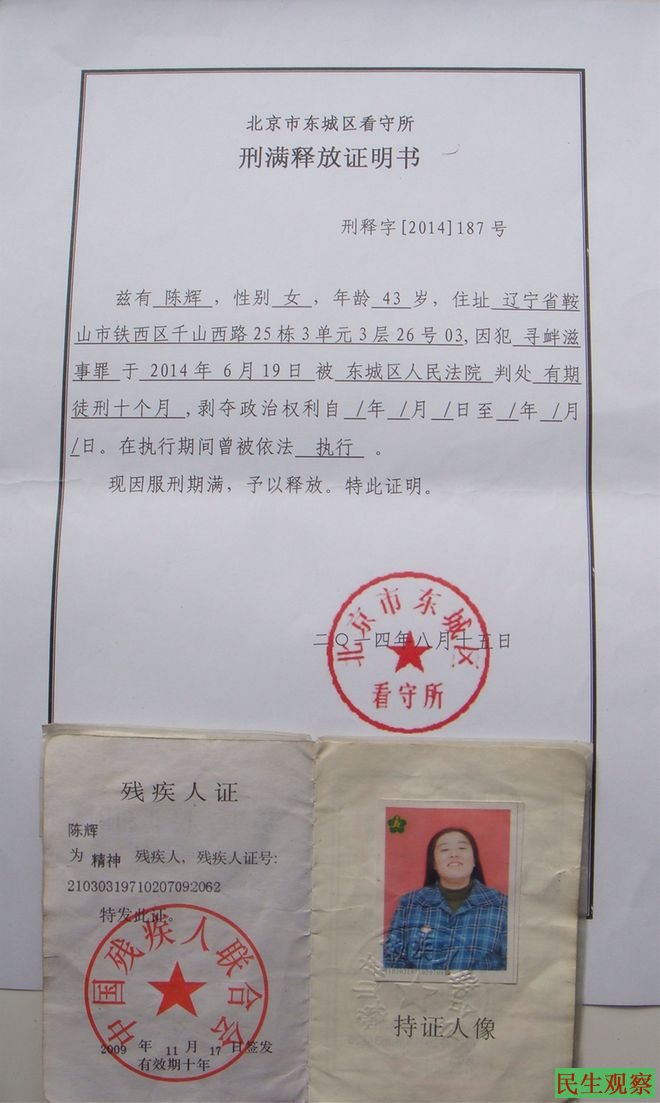 北京市东城区看守所
刑满释放证明书
刑释字[2014]187 号
兹有 陈辉 ，性别 女 ，年龄 43 岁，住址 辽宁省鞍
山市铁西区千山西路25栋3单元3层26号03,因犯 寻衅滋
事罪 于 2014年 6月19日 被 东城区人民法院 判处 有期
徒刑十个月 ,剥夺政治权利自 /年 /月 /日至 /年 /月
/日。在执行期间曾被依法 执行 。
现因服刑期满，予以释放。特此证明。
二〇一四年八月十五日
北京市东城区
看守所
残疾人证
陈辉
为 精神 残疾人，残疾人证号：
21030319710207092062
特发此证。
中国残疾人联合会
2009 年 11 月 17 日签发
有效期十年
持证人像
民生观察